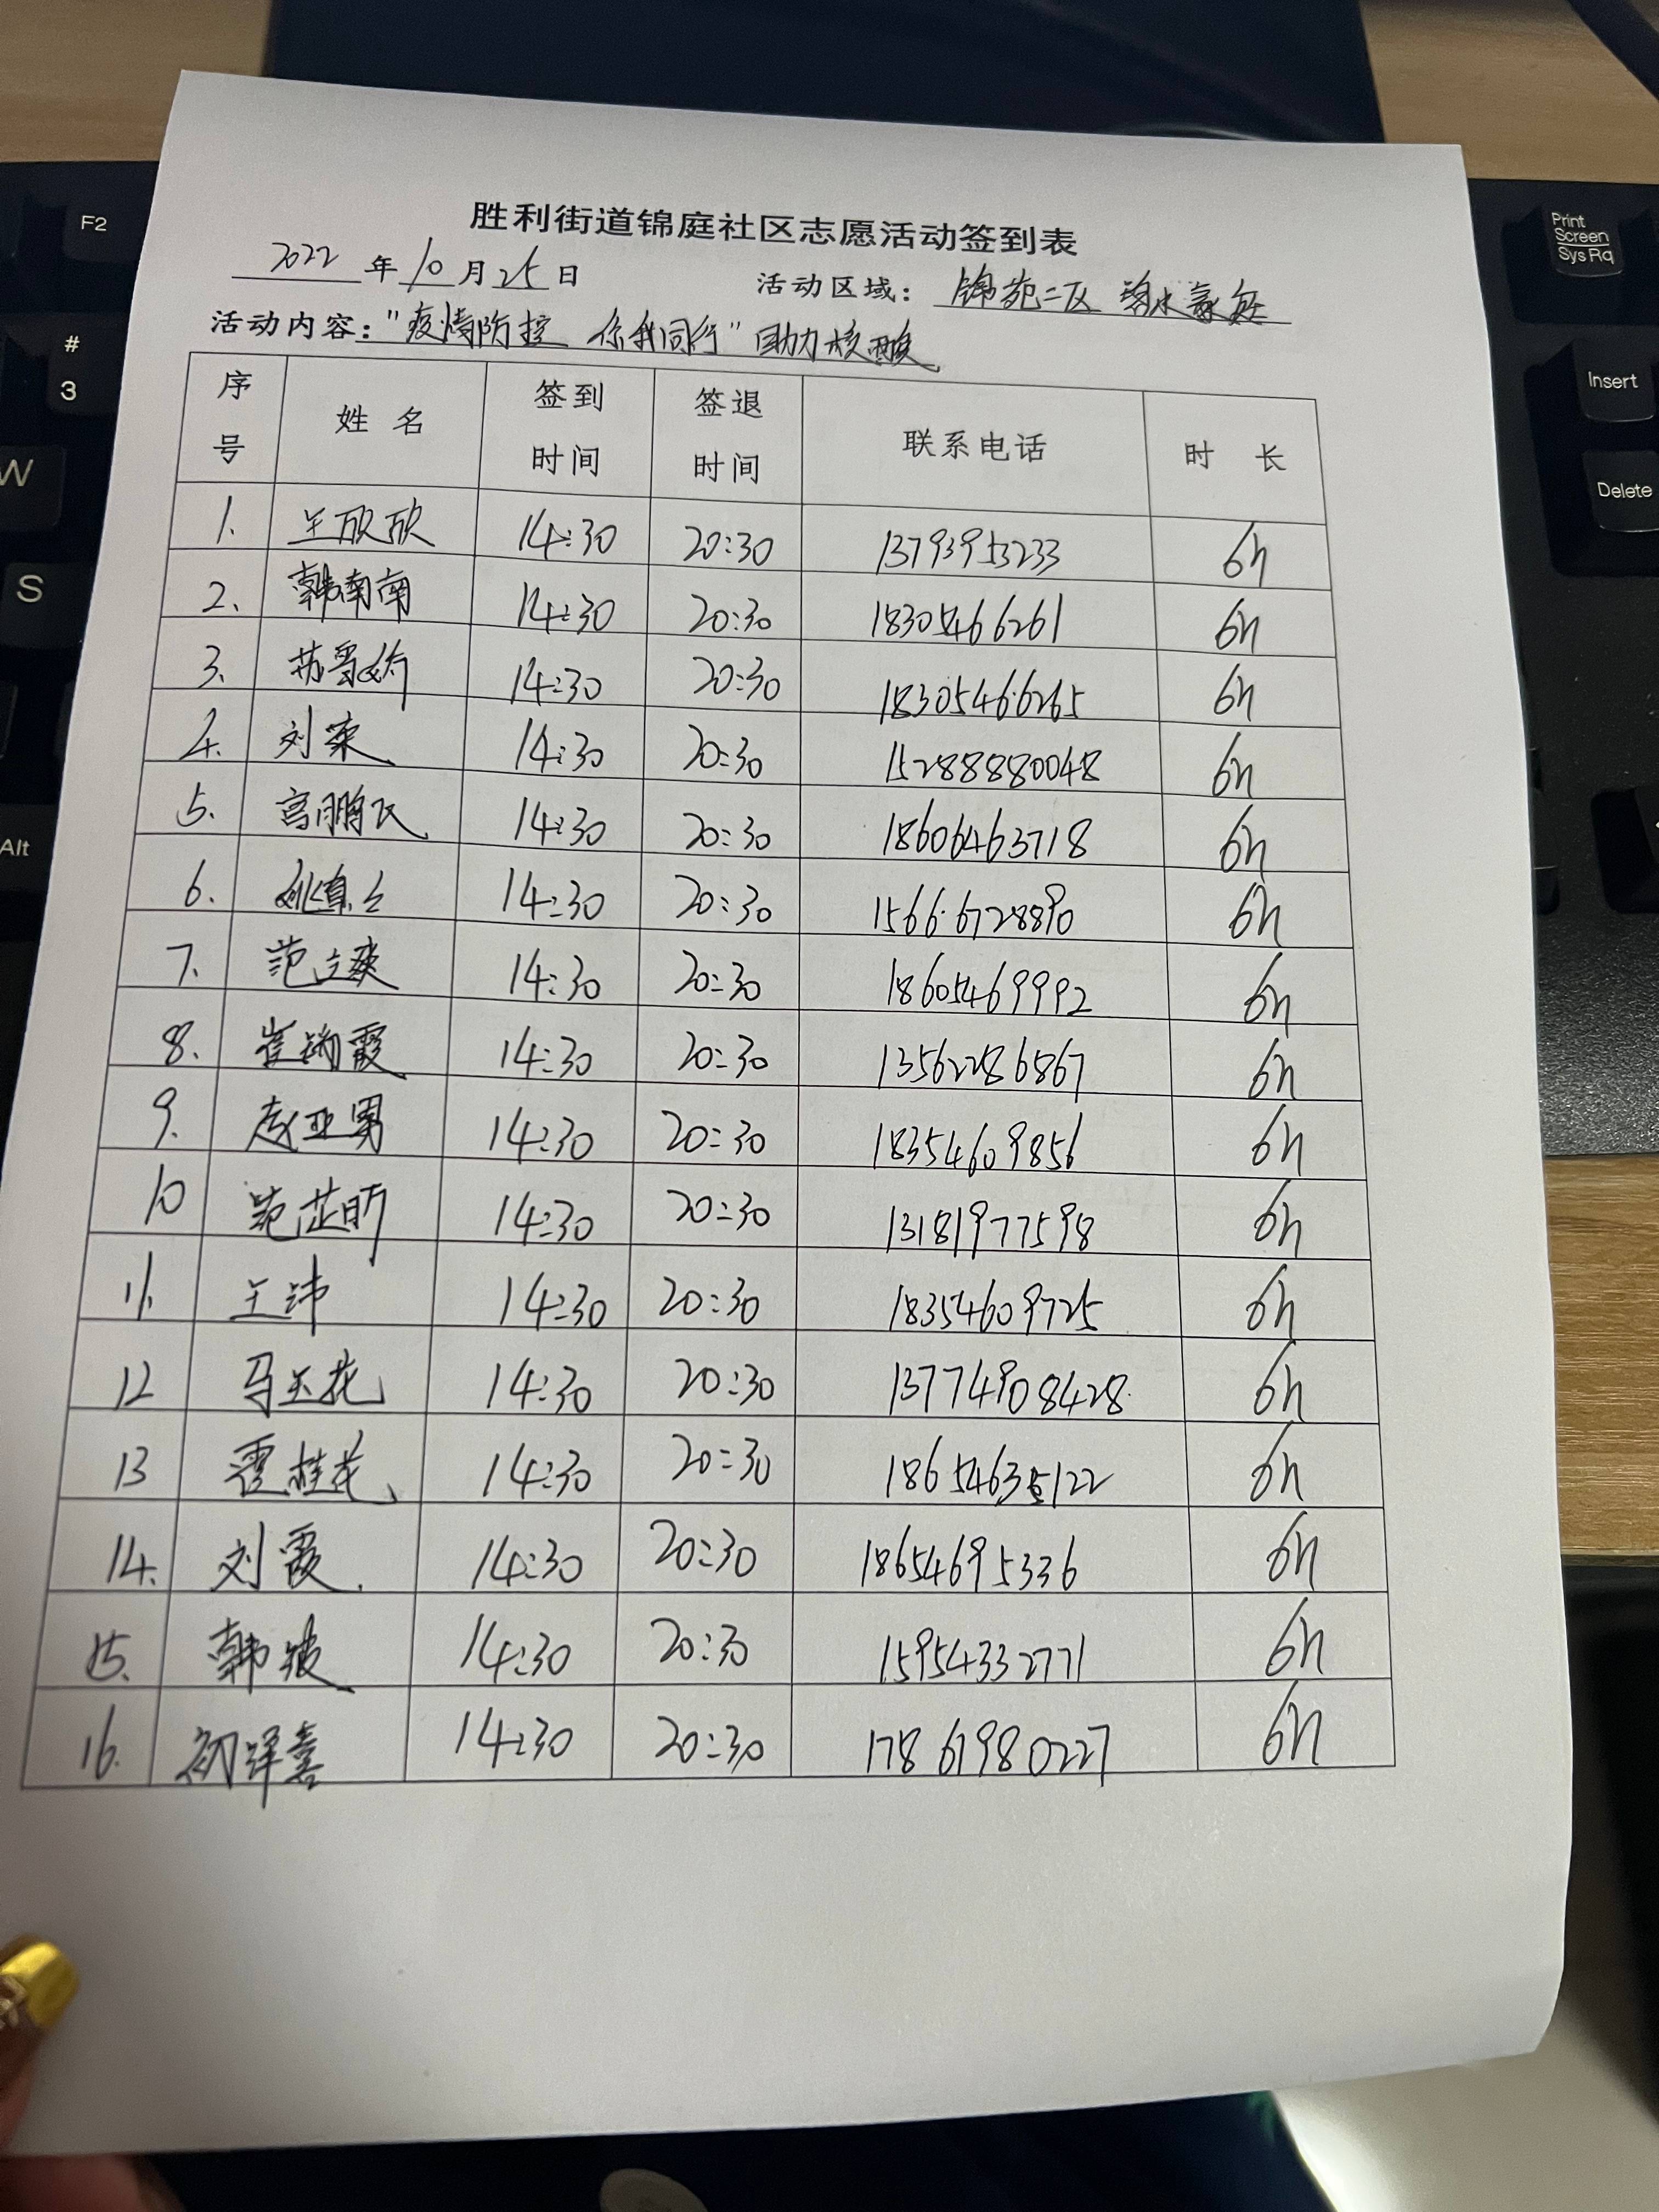 胜利街道锦庭社区志愿活动签到表
2022 年 10 月 25 日 活动区域: 锦苑二区 锦水豪庭
活动内容: "疫情防控 你我同行" 助力核酸
序号 姓名 签到时间 签退时间 联系电话 时长
1. 王欣欣 14:30 20:30 13793953233 6h
2. 韩南南 14:30 20:30 18305466261 6h
3. 苏 14:30 20:30 18305466265 6h
4. 刘荣 14:30 20:30 15288880048 6h
5. 宫鹏飞 14:30 20:30 18606463718 6h
6. 14:30 20:30 15666728890 6h
7. 范立爽 14:30 20:30 18605469992 6h
8. 崔娟霞 14:30 20:30 13562286867 6h
9. 赵亚男 14:30 20:30 18354609856 6h
10 范芷昕 14:30 20:30 13181977598 6h
11. 王沛 14:30 20:30 18354609725 6h
12 马玉花 14:30 20:30 13774908428 6h
13 霍桂花 14:30 20:30 18654635122 6h
14. 刘霞. 14:30 20:30 18654695336 6h
15. 韩波 14:30 20:30 15954332771 6h
16. 初译喜 14:30 20:30 17861980227 6h
F2
#
3
W
S
Alt
Print
Screen
Sys Rq
Insert
Delete